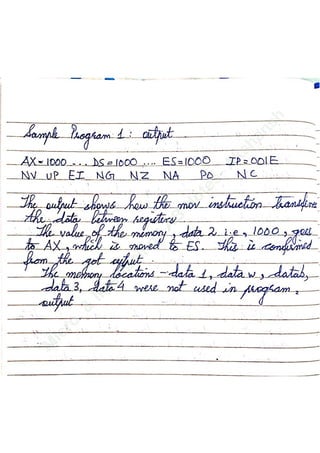 Sample Program 1: output
AX=1000 ... DS=1000 .... ES=1000 IP=001E
NV UP EI NG NZ NA PO NC
The output shows how the mov instruction transfers
the data between registers.
The value of the memory, data 2 i.e, 1000, goes
to AX, which is moved to ES. This is confirmed
from the got output
The memory locations - data 1, data w, datab,
data 3, data 4 were not used in program.
output